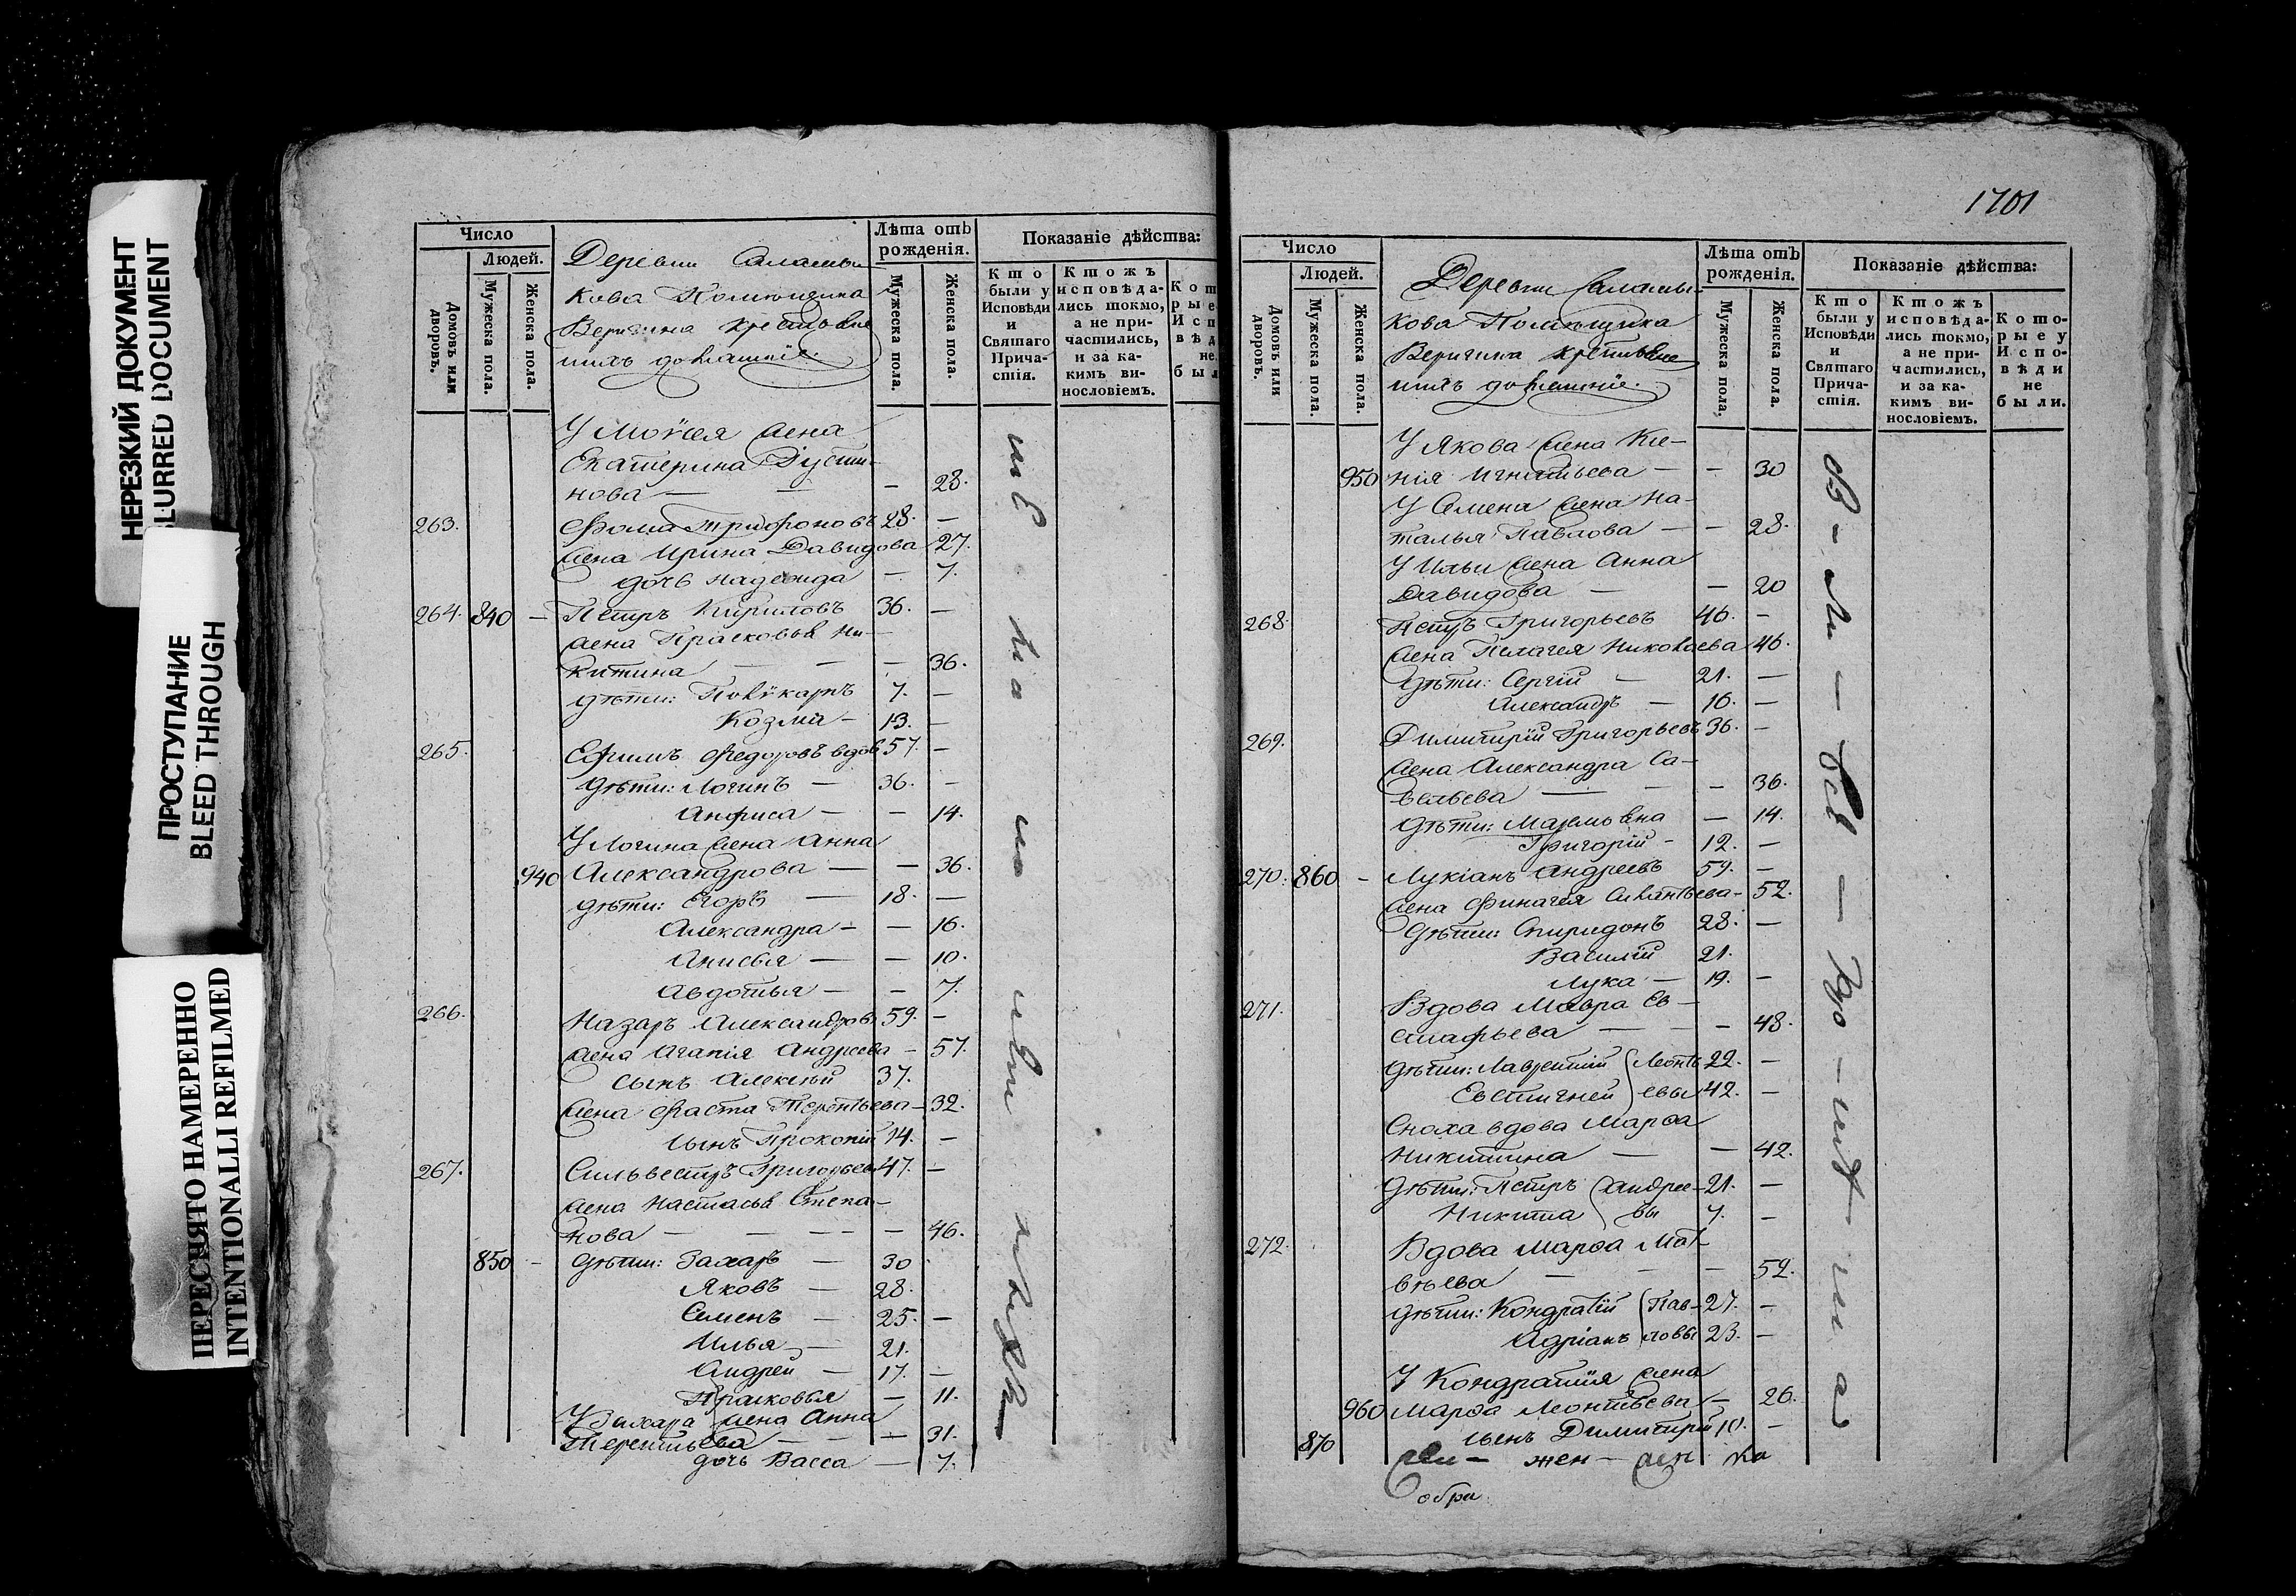 НЕРЕЗКИЙ ДОКУМЕНТ
BLURRED DOCUMENT
ПРОСТУПАНИЕ
BLEED THROUGH
ПЕРЕСНЯТО НАМЕРЕННО
INTENTIONALLI REFILMED
Число
Людей.
Домовъ или дворовъ.
Мужеска пола.
Женска пола.
Деревни Саламы
кова Помѣщика
Веригина крестьяне
ихъ домашніе.
Лѣта отъ
рожденія.
Мужеска пола.
Женска пола.
Показаніе дѣйства:
Кто
были у
Исповѣди
и
Святаго
Прича-
стія.
Ктожъ
исповѣда-
лись токмо,
а не при-
частились,
и за ка-
кимъ ви-
нословіемъ.
Кот
рые
Исп
вѣд
не
был
У Моѵсея жена
Екатерина Іусти-
нова — — — 28.
263. Фома Трифоновъ 28. —
жена Ирина Давидова 27.
дочь Надежда — 7.
264. 840 — Петръ Кириловъ 36. —
жена Прасковья Ни-
китина — — — 36.
дѣти: Поликарпъ 7. —
Козма — 13. —
265. Ефимъ Федоровъ вдов 57. —
дѣти: Логинъ — 36. —
Анфиса — — 14.
У Логина жена Анна
940 Александрова — — 36.
дѣти: Егоръ — 18. —
Александра — — 16.
Анисья — — 10.
Авдотья — — 7.
266. Назаръ Александровъ 59. —
жена Агапія Андреева — 57.
сынъ Алексѣй 37.
жена Фаста Терентьева — 32.
сынъ Прокопій 14. —
267. Сильвестръ Григорьевъ 47. —
жена Настасья Степа-
нова — — — — 46.
850 — дѣти: Захаръ — 30
Яковъ — 28.
Семенъ — 25. —
Илья — 21.
Андрей — 17. —
Прасковья — 11.
У Захара жена Анна
Терентьева — — — 31.
дочь Васса — 7.
1701
Число
Людей.
Домовъ или дворовъ.
Мужеска пола.
Женска пола.
Деревни Саламы-
кова Помѣщика
Веригина крестьяне
ихъ домашніе.
Лѣта отъ
рожденія.
Мужеска пола,
Женска пола.
Показаніе дѣйства:
Кто
были у
Исповѣди
и
Святаго
Прича-
стія.
Ктожъ
исповѣда-
лись токмо,
а не при-
частились,
и за ка-
кимъ ви-
нословіемъ.
Кото-
рые у
Испо-
вѣди
не
были.
У Якова жена Ксе-
950 нія Игнатьева — — 30
У Семена жена На-
талья Павлова — — 28.
У Ильи жена Анна
Давидова — — 20
268. Петръ Григорьевъ 46. —
жена Пелагея Николаева 46.
дѣти: Сергій — 21. —
Александръ — 16. —
269. Димитрій Григорьевъ 36. —
жена Александра Са-
вельева — — — 36.
дѣти: — 14.
Григорій — 12. —
270. 860 — Лукіанъ Андреевъ 59. —
жена — 52.
дѣти: Спиридонъ 28. —
Василій 21.
Лука — 19. —
271. Вдова Мавра Ев-
стафьева — — — 48.
дѣти: Лаврентій Леонть 22. —
Евстигней евы 42. —
Сноха вдова Марѳа
Никитина — — 42.
дѣти: Петръ Андрее- 21. —
Никита вы 7. —
272. Вдова Марѳа Мат-
вѣева — — 52.
дѣти: Кондратій Пав- 27. —
Адріанъ ловы 23. —
У Кондратія жена
960 Марѳа Леонтьева — 26.
870 сынъ Димитрій 10. —